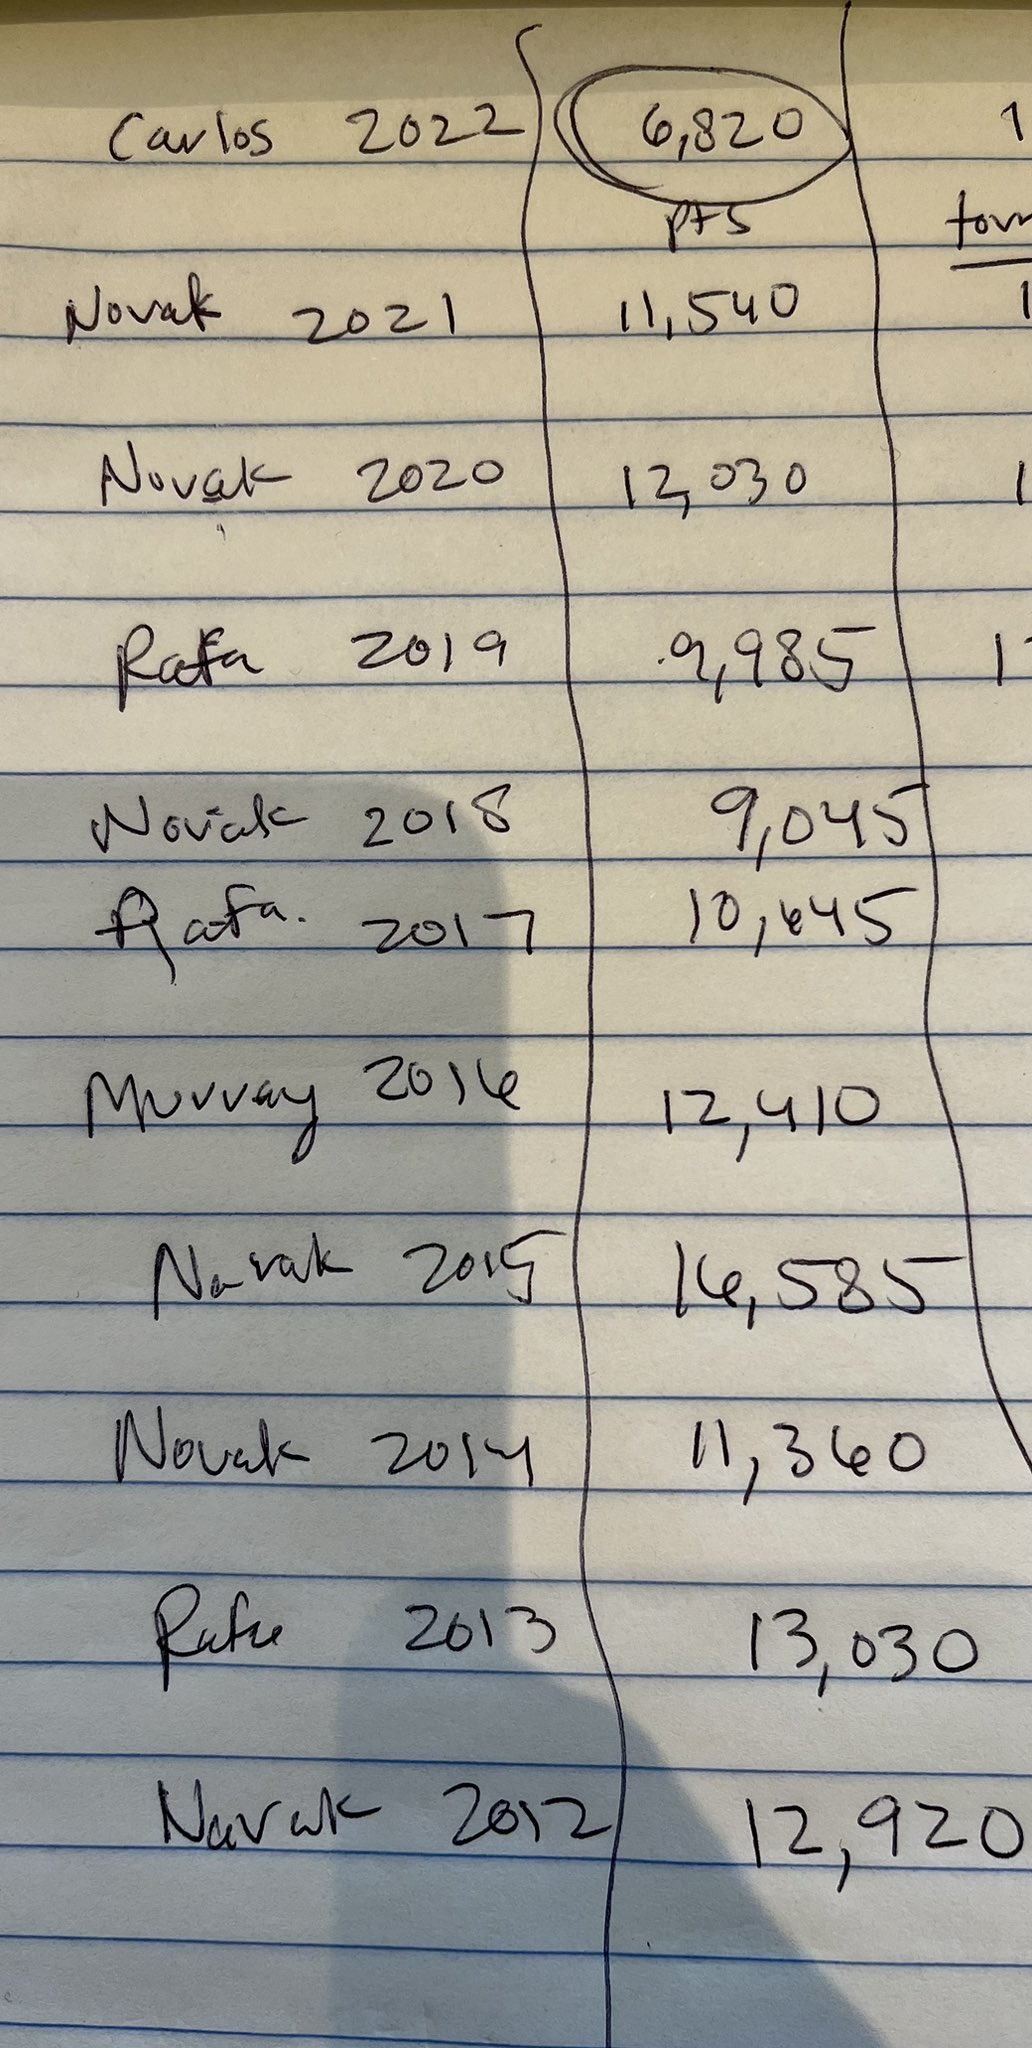 Carlos 2022 6,820 1
pts tour
Novak 2021 11,540 1
Novak 2020 12,030 1
Rafa 2019 9,985 1
Novak 2018 9,045
Rafa. 2017 10,645
Murray 2016 12,410
Novak 2015 16,585
Novak 2014 11,360
Rafa 2013 13,030
Novak 2012 12,920